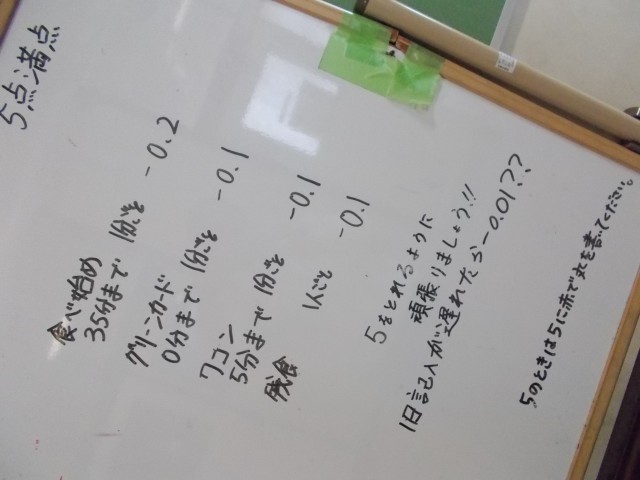 5点満点
食べ始め
35分まで 1分ごと -0.2
グリーンカード
0分まで 1分ごと -0.1
ワゴン
5分まで 1分ごと -0.1
残食 1人ごと -0.1
5をとれるように
頑張りましょう!!
1日記入が遅れたら-0.01??
5のときは5に赤で丸を書いてください。